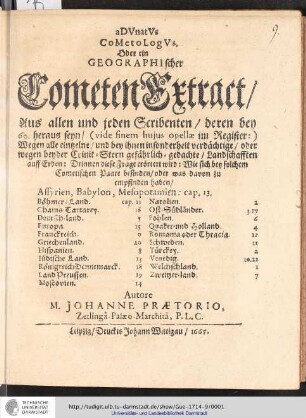 aDVnatVs
CoMetoLogVs,
Oder ein
GEOGRAPHischer
Cometen Extract/
Aus allen und jeden Scribenten/ deren bey
60. heraus seyn/ (vide finem hujus opellæ im Register:)
Wegen alle eintzelne/ und bey ihnen insonderheit verdächtige/ oder
wegen beyder Crinit-Stern gefährlich-gedachte/ Landschafften
auff Erden: Drinnen diese Frage erörtert wird: Wie sich bey solchem
Cometischen Paare befinden/ oder was davon zu
empfinden haben/
Assyrien, Babylon, Mesopotamien: cap. 13.
Böhmer-Land. cap. 11
Charna-Tartarey. 16
Deutschland. 1
Europa. 15
Franckreich. 9
Griechenland. 20
Hispanien. 8
Jüdische Land. 13
Königreich Dennemarck. 18
Land Preussen. 19
Moscovien. 14
Natolien. 2
Ost-Süd-Länder. 3.17
Pohlen. 6
Quaker und Holland. 4
Romania oder Thracia. 12
Schweden. 11
Türckey. 2
Venedig. 10.21
Welschland. 1
Zweitzer-land. 7
Autore
M. JOHANNE PRÆTORIO,
Zetlingâ-Palæo-Marchitâ, P.L.C.
Leipzig/ Druckts Johann Wittigau/ 1665.
TECHNISCHE
UNIVERSITÄT
DARMSTADT
http://tudigit.ulb.tu-darmstadt.de/show/Gue-1714-9/0001
Universitäts- und Landesbibliothek Darmstadt